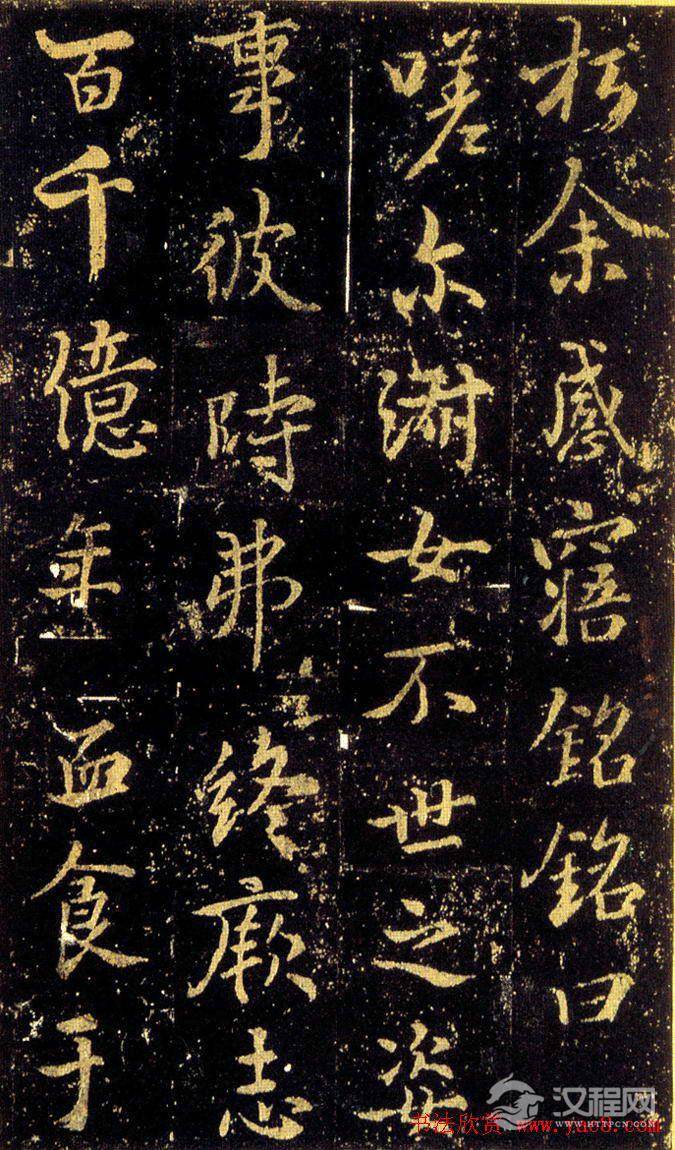 於余感寤銘銘曰
嗟尔淑女不世之姿
事彼時弗終厥志
百千億年血食于
汉程网
WWW.HTTPCN.COM
书法欣赏 www.yac8.com